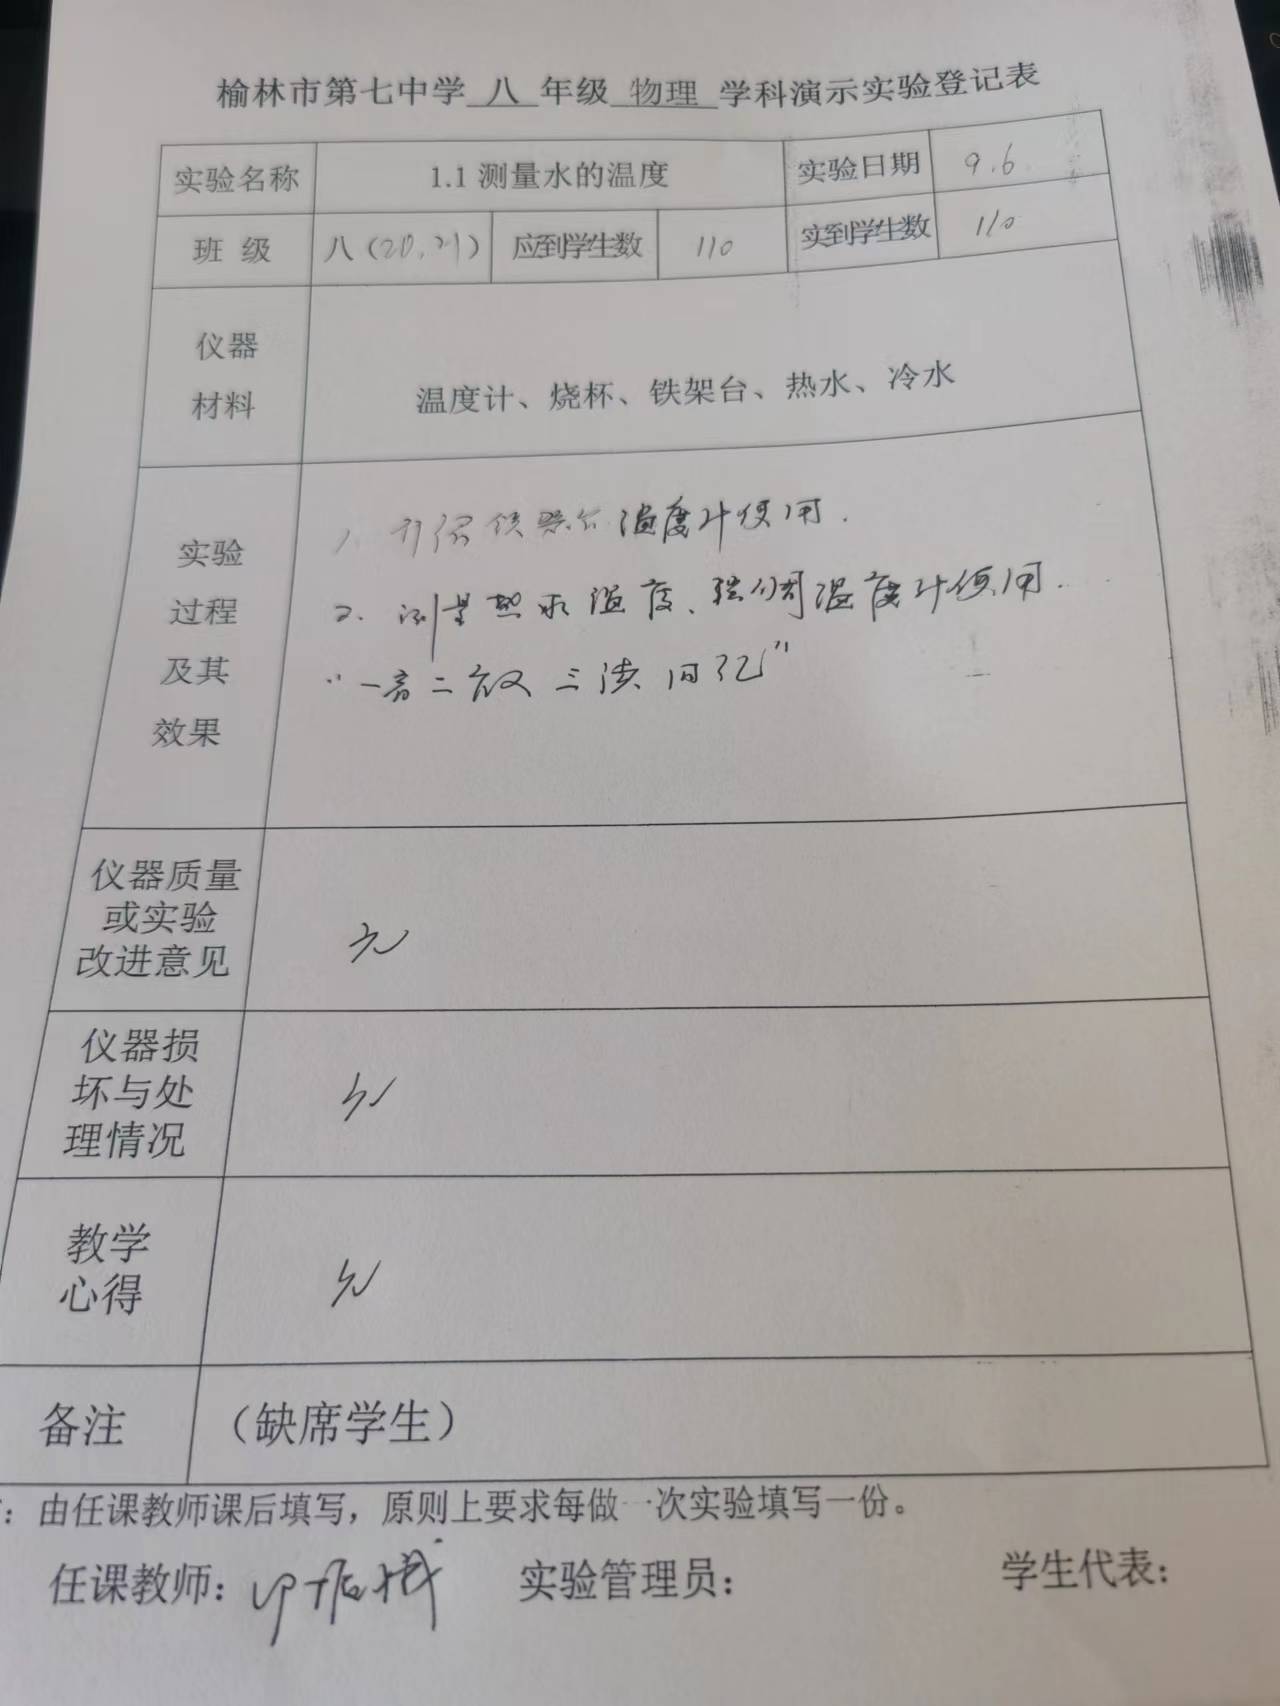 榆林市第七中学 八 年级 物理 学科演示实验登记表
实验名称 1.1 测量水的温度 实验日期 9.6
班 级 八（20,21） 应到学生数 110 实到学生数 110
仪器
材料
温度计、烧杯、铁架台、热水、冷水
实验
过程
及其
效果
1. 介绍 温度计使用.
2. 测量热水温度、强调温度计使用.
“一看二放三读四记”
仪器质量
或实验
改进意见
无
仪器损
坏与处
理情况
无
教学
心得
无
备注 （缺席学生）
：由任课教师课后填写，原则上要求每做一次实验填写一份。
任课教师： 实验管理员： 学生代表：